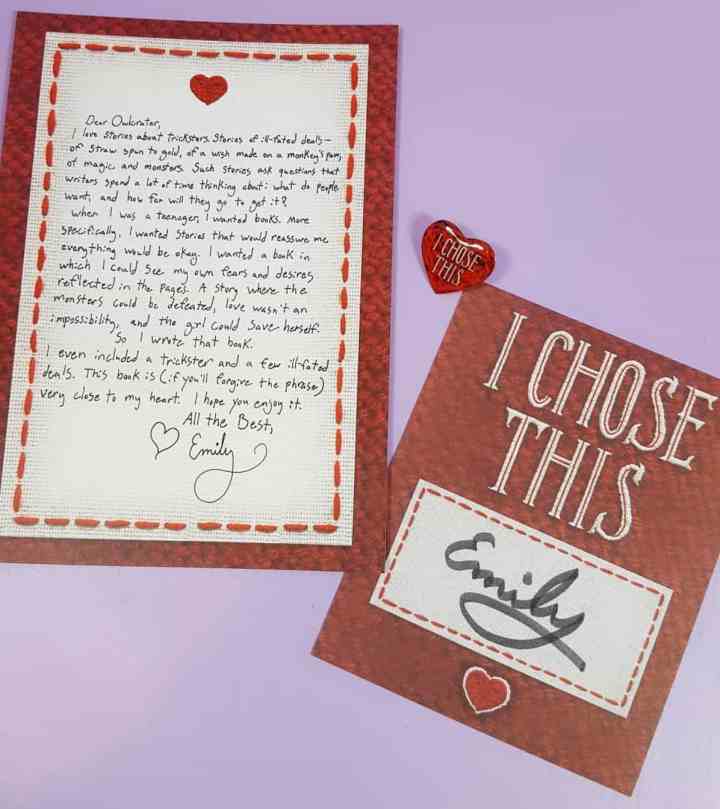 Dear Owlcrater,
I love stories about tricksters. Stories of ill-fated deals—
of straw spun to gold, of a wish made on a monkey's paw,
of magic and monsters. Such stories ask questions that
writers spend a lot of time thinking about: what do people
want, and how far will they go to get it?
When I was a teenager, I wanted books. More
specifically, I wanted stories that would reassure me
everything would be okay. I wanted a book in
which I could see my own fears and desires
reflected in the pages. A story where the
monsters could be defeated, love wasn't an
impossibility, and the girl could save herself.
So I wrote that book.
I even included a trickster and a few ill-fated
deals. This book is (if you'll forgive the phrase)
very close to my heart. I hope you enjoy it.
All the Best,
Emily
I CHOSE
THIS
I CHOSE
THIS
Emily